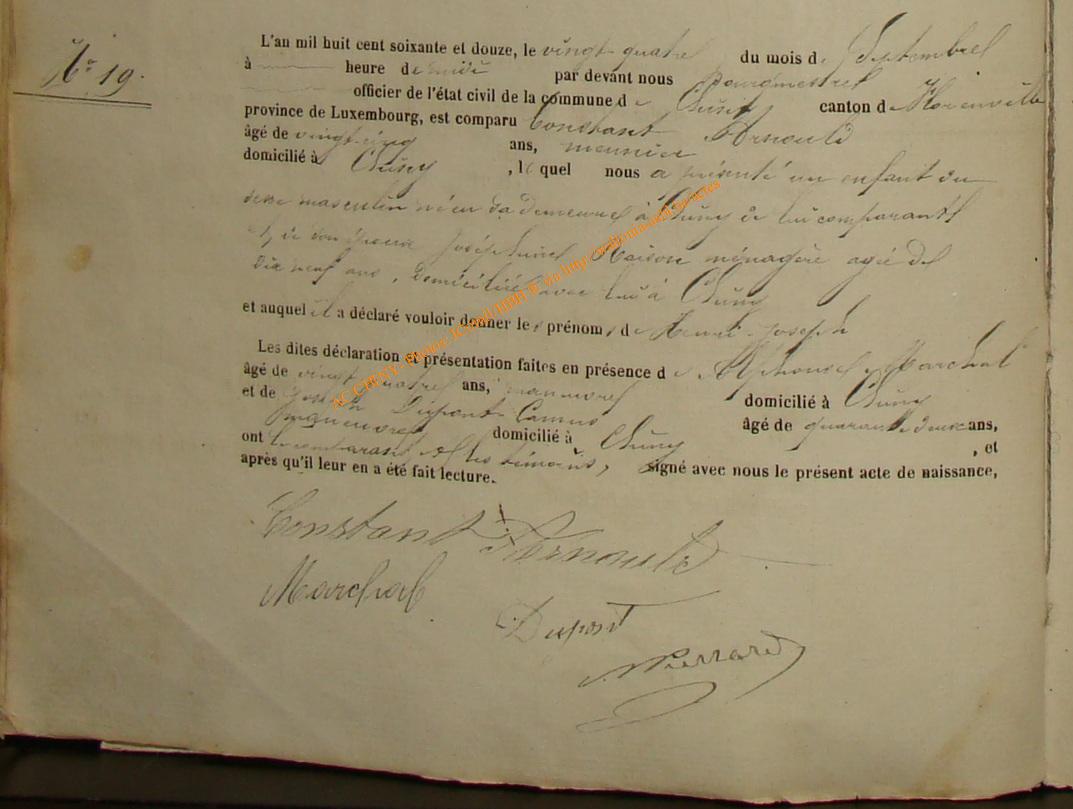 N° 19.
L'an mil huit cent soixante et douze, le vingt-quatre du mois de Septembre
à heure de midi par devant nous Bourgmestre
officier de l'état civil de la commune de Chiny canton de Florenville
province de Luxembourg, est comparu Constant Arnould
âgé de vingt-cinq ans, meunier
domicilié à Chiny, lequel nous a présenté un enfant du
sexe masculin né en sa demeure à Chiny de lui comparant
et de son épouse Joséphine Raison ménagère agée de
dix neuf ans, domiciliée avec lui à Chiny
et auquel il a déclaré vouloir donner les prénoms de Henri-Joseph
Les dites déclaration et présentation faites en présence de Alphonse Marchal
âgé de vingt quatre ans, manuvre domicilié à Chiny
et de Joseph Dupont-Camus âgé de quarante deux ans,
domicilié à Chiny, et
ont le comparant et les témoins, signé avec nous le présent acte de naissance,
après qu'il leur en a été fait lecture.
Constant Arnould
Marchal
Dupont
Pierrard